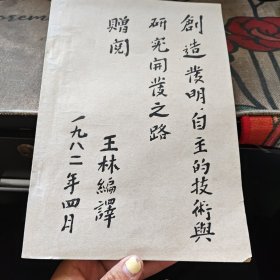 創造發明·自主的技術與
研究開發之路
贈閱
王林編譯
一九八二年四月